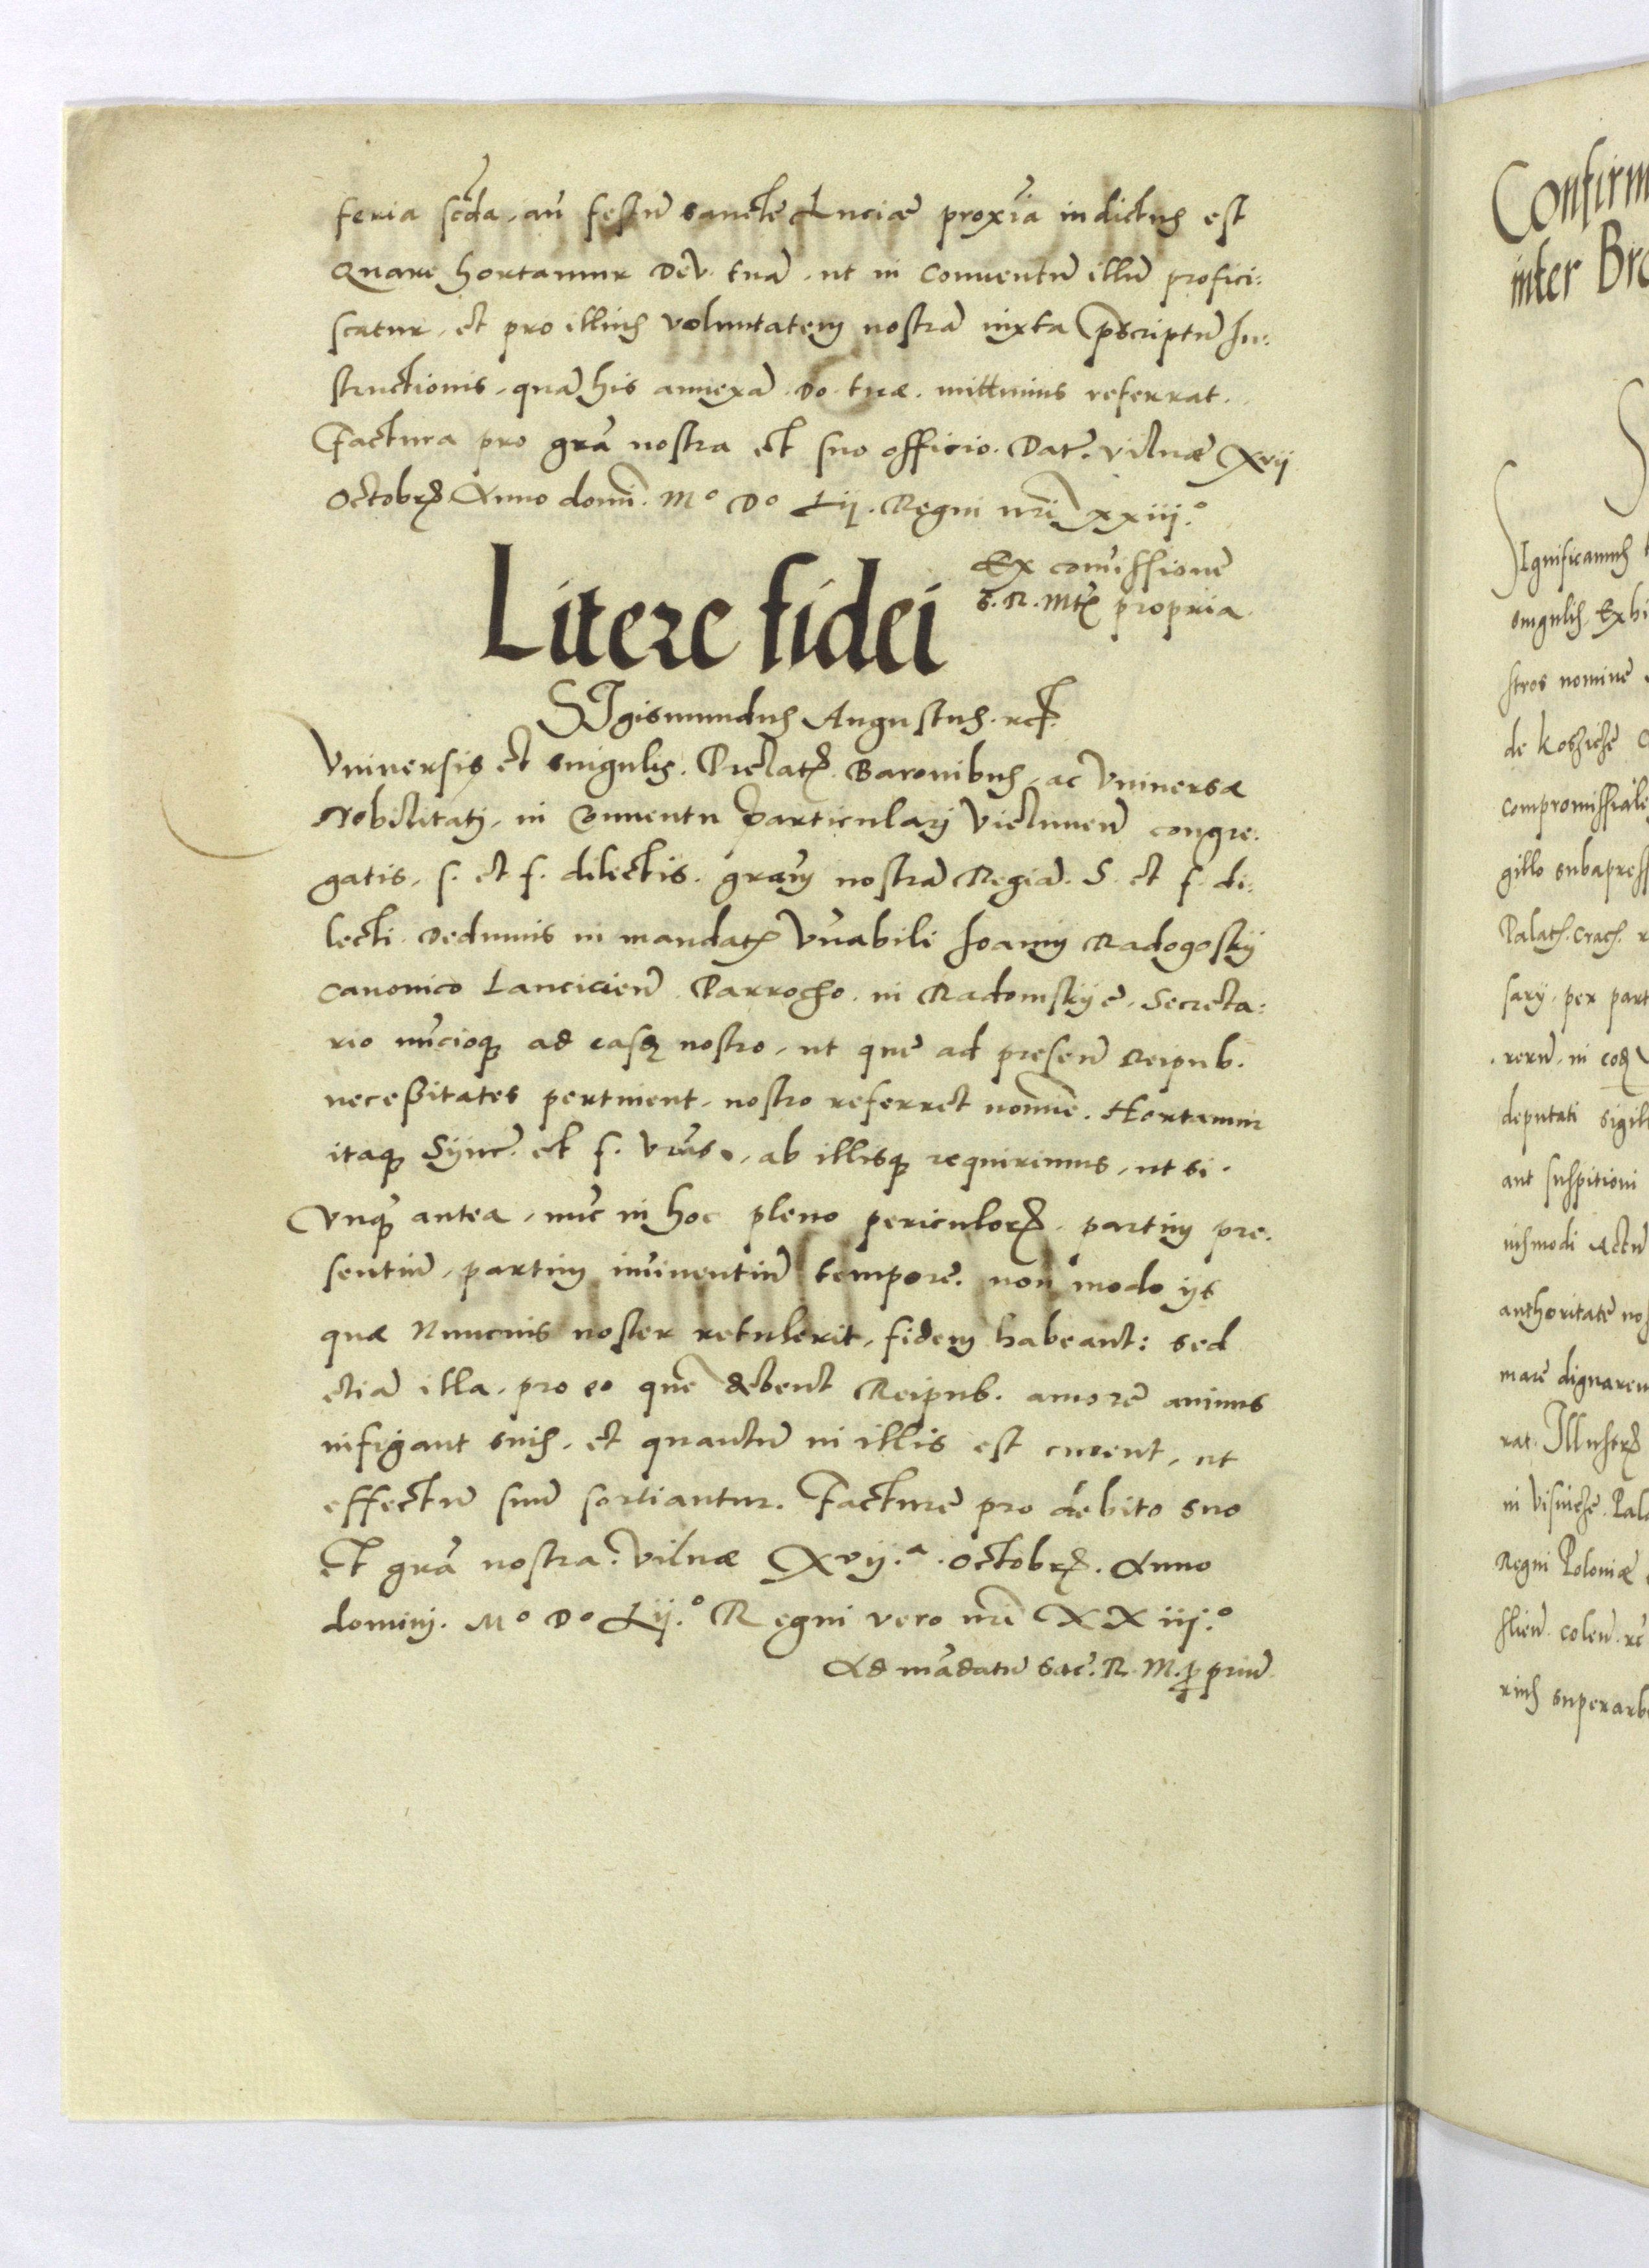 feria scda, an̄ festū sanctę Luciæ proxīa indictus est
Quare hortamur Dev. tuā, ut in conventū illū profici:
scatur, et pro illius voluntatem nostrā iuxta p̄scriptū In:
structionis, quā his annexā Do. tuæ. mittimus referrat.
Factura pro grā nostra et suo officio. Dat. Vilnæ Xvij
Octobr. Anno domī. M° D° Lij. Regni nrī xxiij.°
Ex com̄issione
S. R. Mtis propria.
Litere fidei
SIgismundus Augustus. rct.
Universis et singulis. Prelatis. Baronibus, ac Universæ
Nobilitati, in Conventu particulari Vielunen̄ congre:
gatis, s. et f. dilectis. grām nostrā Regiā. S. et f. di:
lecti. Dedimus in mandatis Vn̄abili Joanni Radogosky
canonico Lancicien̄. Parrocho. in Radomskyē. Secreta:
rio nūcioque ad easdem nostro, ut quę ad presen̄ Reipub.
necessitates pertinent, nostro referret nomīe. Hortamur
itaque Sync. et f. vr̄as, ab illisque requirimus, ut si.
Unque antea, nūc in hoc pleno periculorum, partim pre:
sentiū, partim im̄inentiū tempore. non modo ijs
quæ Nuncius noster retulerit, fidem habeant: sed
etiā illa, pro eo quē debent Reipub. amorē animis
infigant suis, et quantū in illis est curent, ut
effectū suū sortiantur. Facturę pro debito suo
Et grā nostra. Vilnæ Xvij.a. Octobr. Anno
domini. M° D° Lij.° Regni vero nrī XXiij.°
Ad mādatū Sac. R. M. ꝓpriū
Confirm
inter Bro
SIgnificamus
singulis. Exhi
stros nominē
de Kosziche
compromissiale
gillo subapress
Palat. Crac.
sary, per part
rerū, in eod
deputati sigill
aut suspitioni
iusmodi Actū
authoritatē nos
marē dignaren
rat. Illustr
in Visnicze. Pala
Regni Poloniæ
slien̄. colen̄.
rius superarb